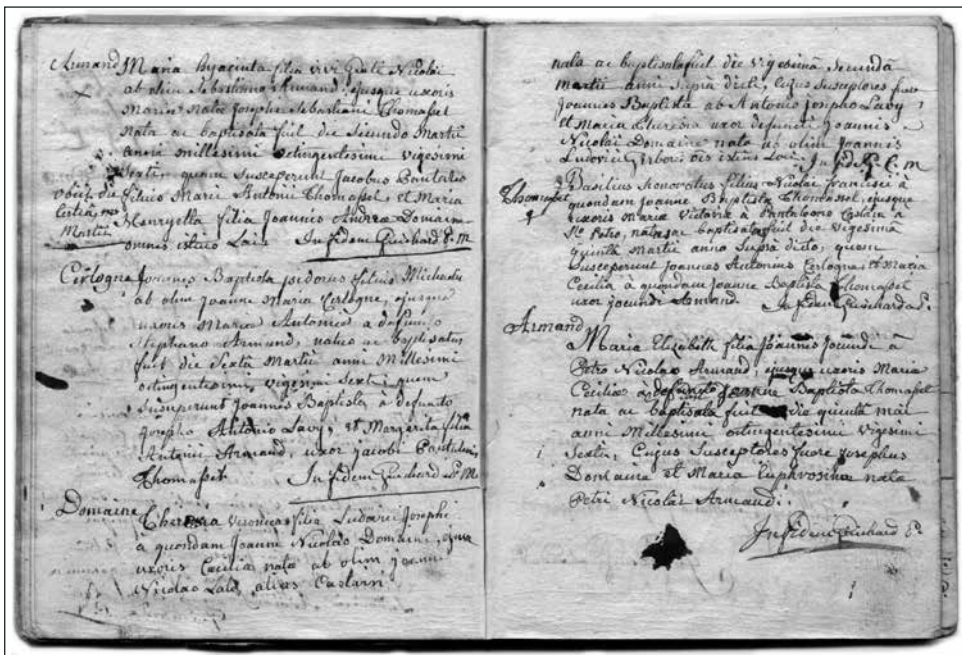 Armand Maria hyacinta filia vivi Nicolai
ab olim Sebastiano Armand, ejusque uxoris
Mariæ natæ Josephi Sebastiani Thomasset
nata ac baptisata fuit die Secundo Martii
anni millesimi octingentesimi vigesimi
Sexti, quem Susceperunt Jacobus
obiit die filius Marci Antonii Thomasset, et Maria
tertia mensis Martii Henryetta filia Joannis Andreæ Domaine
omnes istius Loci In fidem Guichard P. M
Cerlogne Joannes Baptista isidorus filius Michaelis
ab olim Joanne Maria Cerlogne, ejusque
uxoris Mariæ Antoniæ a defuncto
Stephano Armand, natus ac baptisatus
fuit die Sexta Martii anni Millesimi
octingentesimi, vigesimi Sexti, quem
Susceperunt Joannes Baptista, à defuncto
Josepho Antonio Lavy, et Margerita filia
Antonii Armand, uxor jacobi
Thomasset In fidem Guichard P. M
Domaine Theresia veronica filia Ludovici Josephi
à quondam Joanne Nicolao Domaine, ejusque
uxoris Cæciliæ nata ab olim
Nicolao alias
nata ac baptisata fuit die vigesimâ Secundâ
martii anni Supra dicti, cujus Susceptores fuere
Joannes Baptista ab Antonio Josepho Lavy
et Maria theresia uxor defuncti Joannis
Nicolai Domaine nata ab olim Joannis
Ludovici istius Loci. In fid. G. P. M
Thomasset Basilius honoratus filius Nicolai francisci à
quondam Joanne Baptista Thomasset, ejusque
uxoris Mariæ Victoriæ à Pantaleone à
Sto Petro, natus ac baptisatus fuit die vigesimâ
quintâ martii anno Supra dicto, quem
Susceperunt Joannes Antonius Cerlogne, et Maria
Cecilia à quondam Joanne Baptista Thomasset
uxor jocundi Armand In fidem Guichard P.
Armand
Maria Elizabeth filia Joannis Jocundi à
Petro Nicolao Armand, ejusque uxoris Mariæ
Cæciliæ à defuncto Joanne Baptista Thomasset
nata ac baptisata fuit die quintâ mai
anni Millesimi octingentesimi vigesimi
Sexti, Cujus Susceptores fuere josephus
Domaine et Maria Euphrosina nata
Petri Nicolai Armand.
In fidem Guichard P.